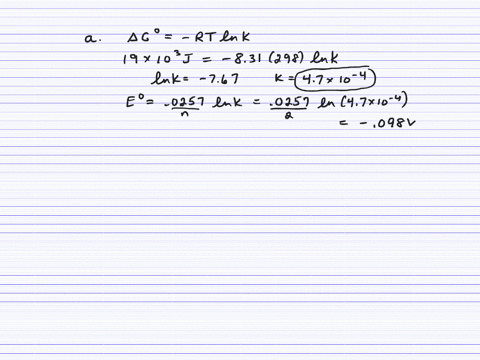 a. ΔG° = - RT ln K
19 x 10³ J = -8.31 (298) ln K
ln K = -7.67 K = 4.7 x 10⁻⁴
E° = .0257/n ln K = .0257/2 ln (4.7 x 10⁻⁴)
= -.098 V